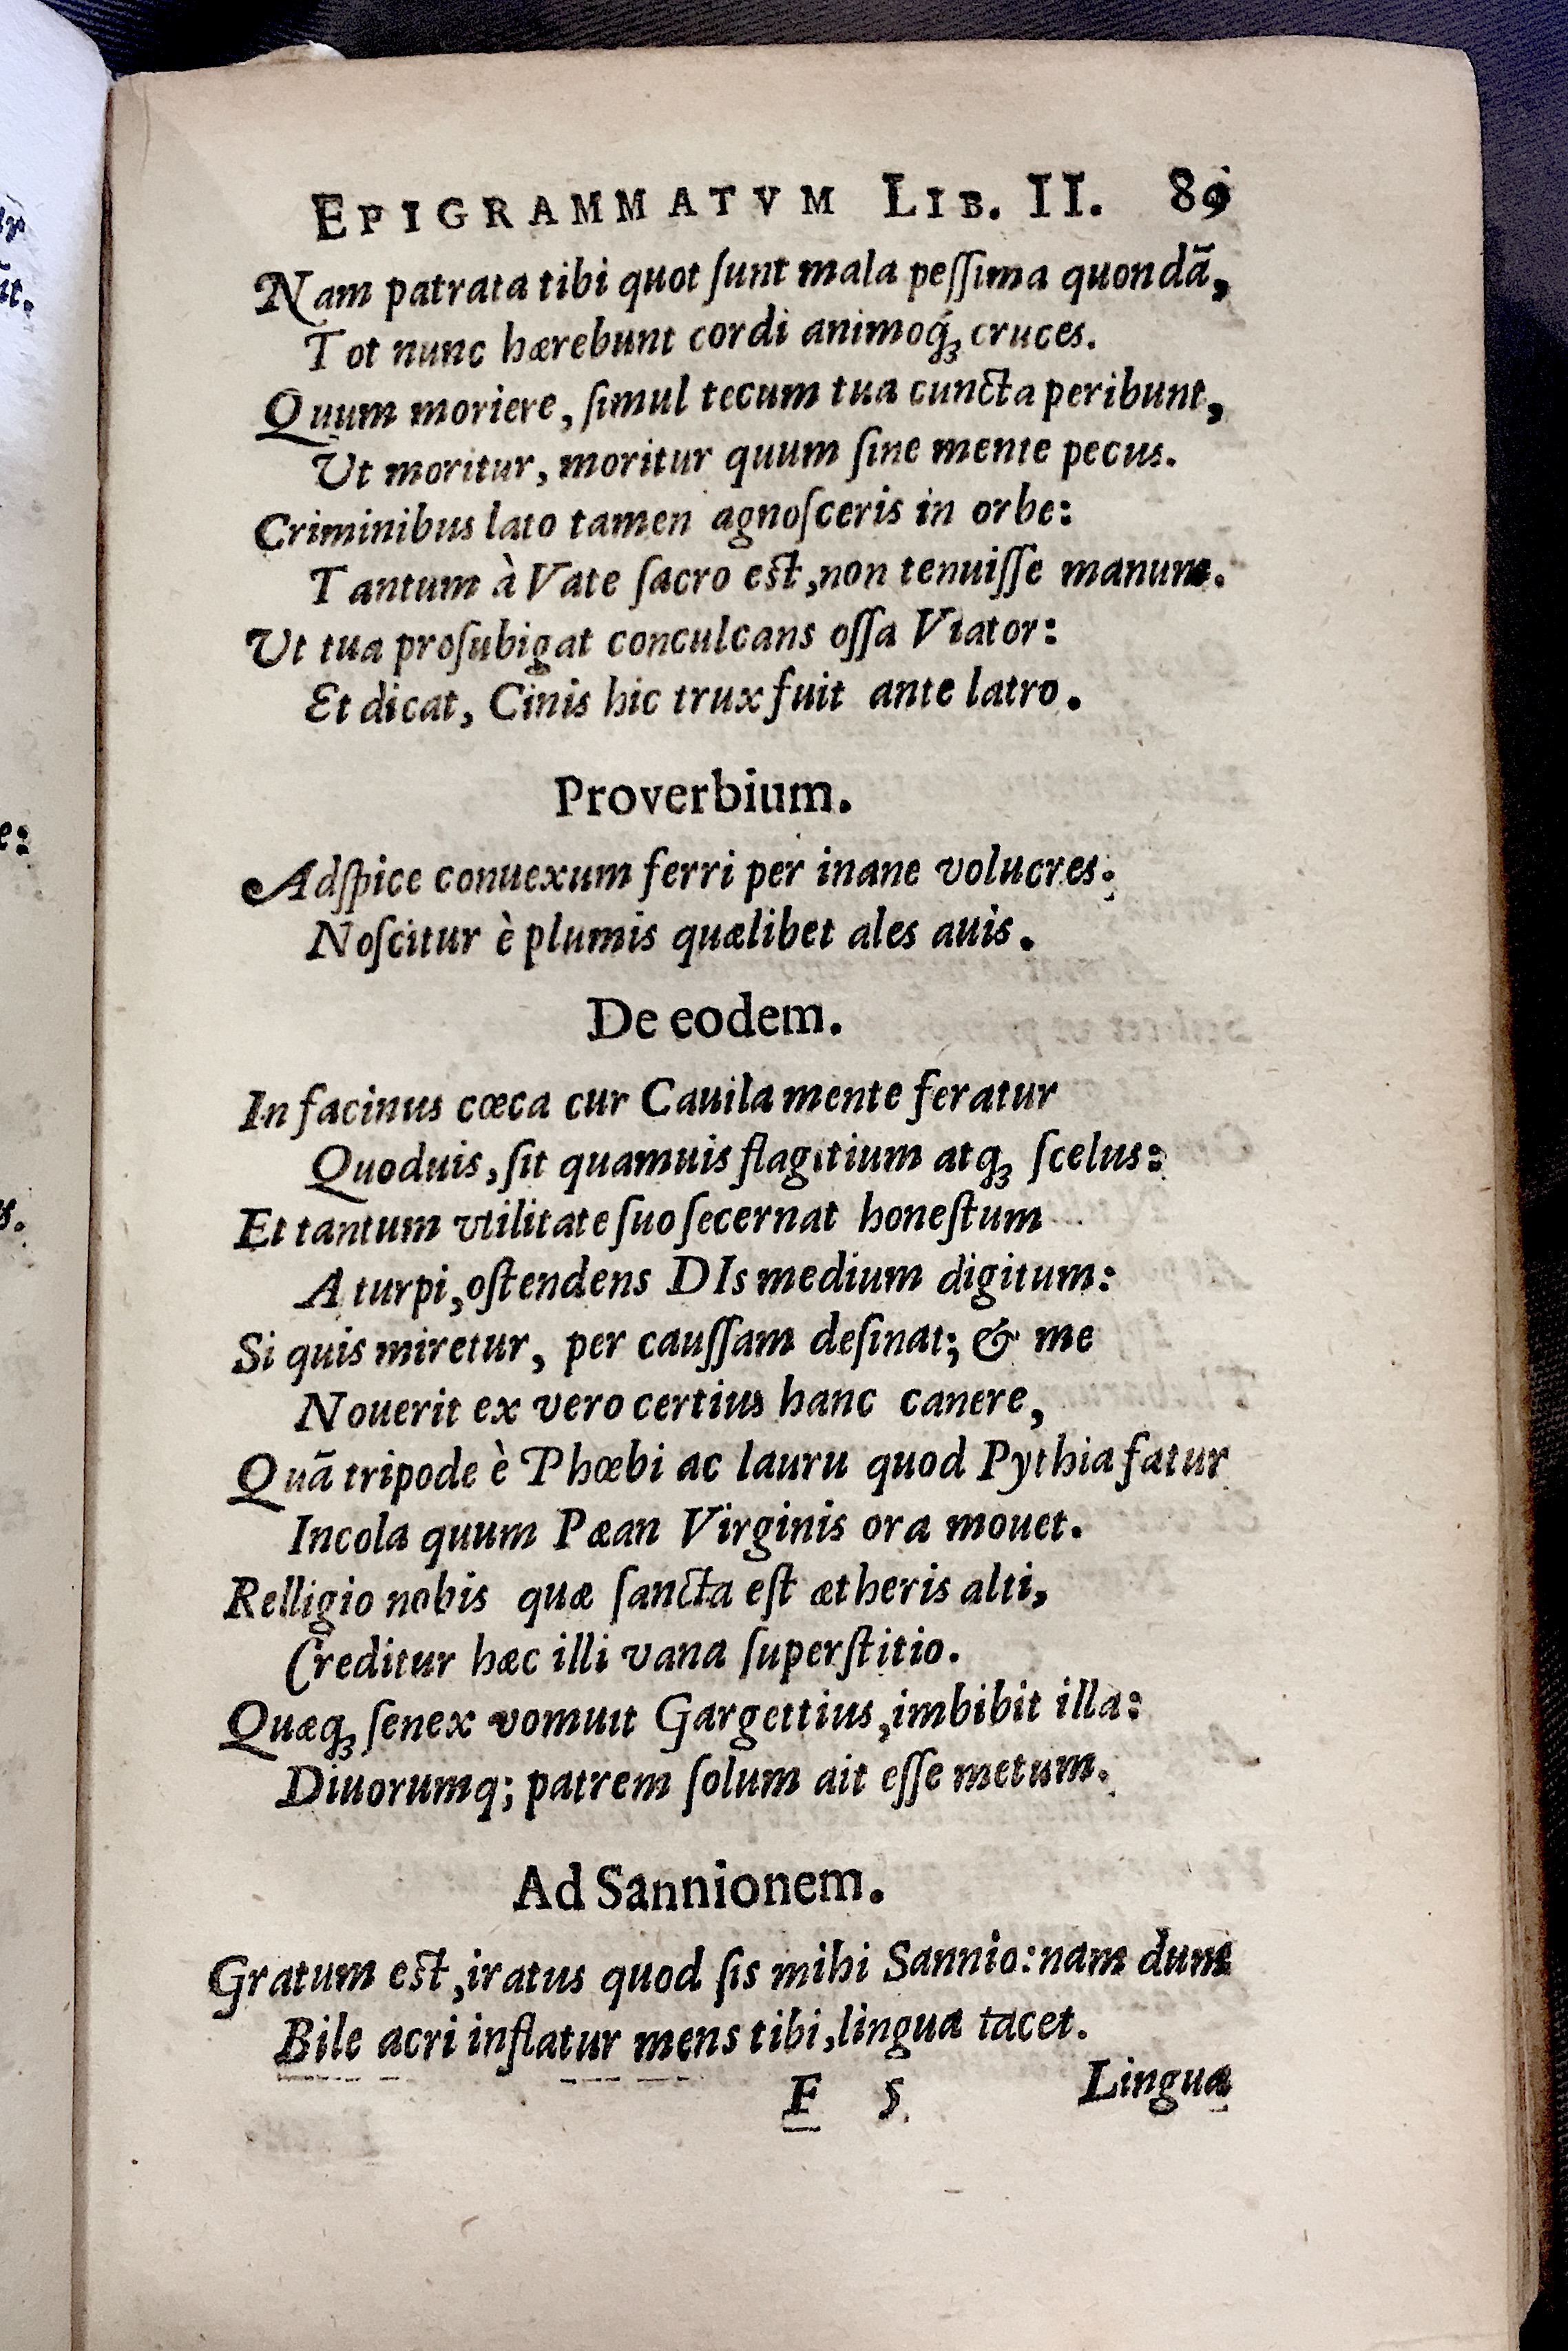 EPIGRAMMATVM LIB. II. 89
Nam patrata tibi quot ſunt mala peſſima quondā,
Tot nunc hærebunt cordi animoq́ꝫ cruces.
Quum moriere, ſimul tecum tua cuncta peribunt,
Ut moritur, moritur quum ſine mente pecus.
Criminibus lato tamen agnoſceris in orbe:
Tantum à Vate ſacro est, non tenuiſſe manum.
Ut tua proſubigat conculcans oſſa Viator:
Et dicat, Cinis hic trux fuit ante latro.
Proverbium.
Adſpice conuexum ferri per inane volucres:
Noſcitur è plumis quælibet ales auis.
De eodem.
In facinus cœca cur Cauila mente feratur
Quoduis, ſit quamuis flagitium atqꝫ ſcelus:
Et tantum vtilitate ſuo ſecernat honeſtum
A turpi, oſtendens DIs medium digitum:
Si quis miretur, per cauſſam deſinat; & me
Nouerit ex vero certius hanc canere,
Quā tripode è Phœbi ac lauru quod Pythia fatur
Incola quum Pæan Virginis ora mouet.
Relligio nobis quæ ſancta eſt ætheris alti,
Creditur hæc illi vana ſuperſtitio.
Quæqꝫ ſenex vomuit Gargettius, imbibit illa:
Diuorumq; patrem ſolum ait eſſe metum.
Ad Sannionem.
Gratum est, iratus quod ſis mihi Sannio: nam dum
Bile acri inflatur mens tibi, lingua tacet.
F 5. Lingua